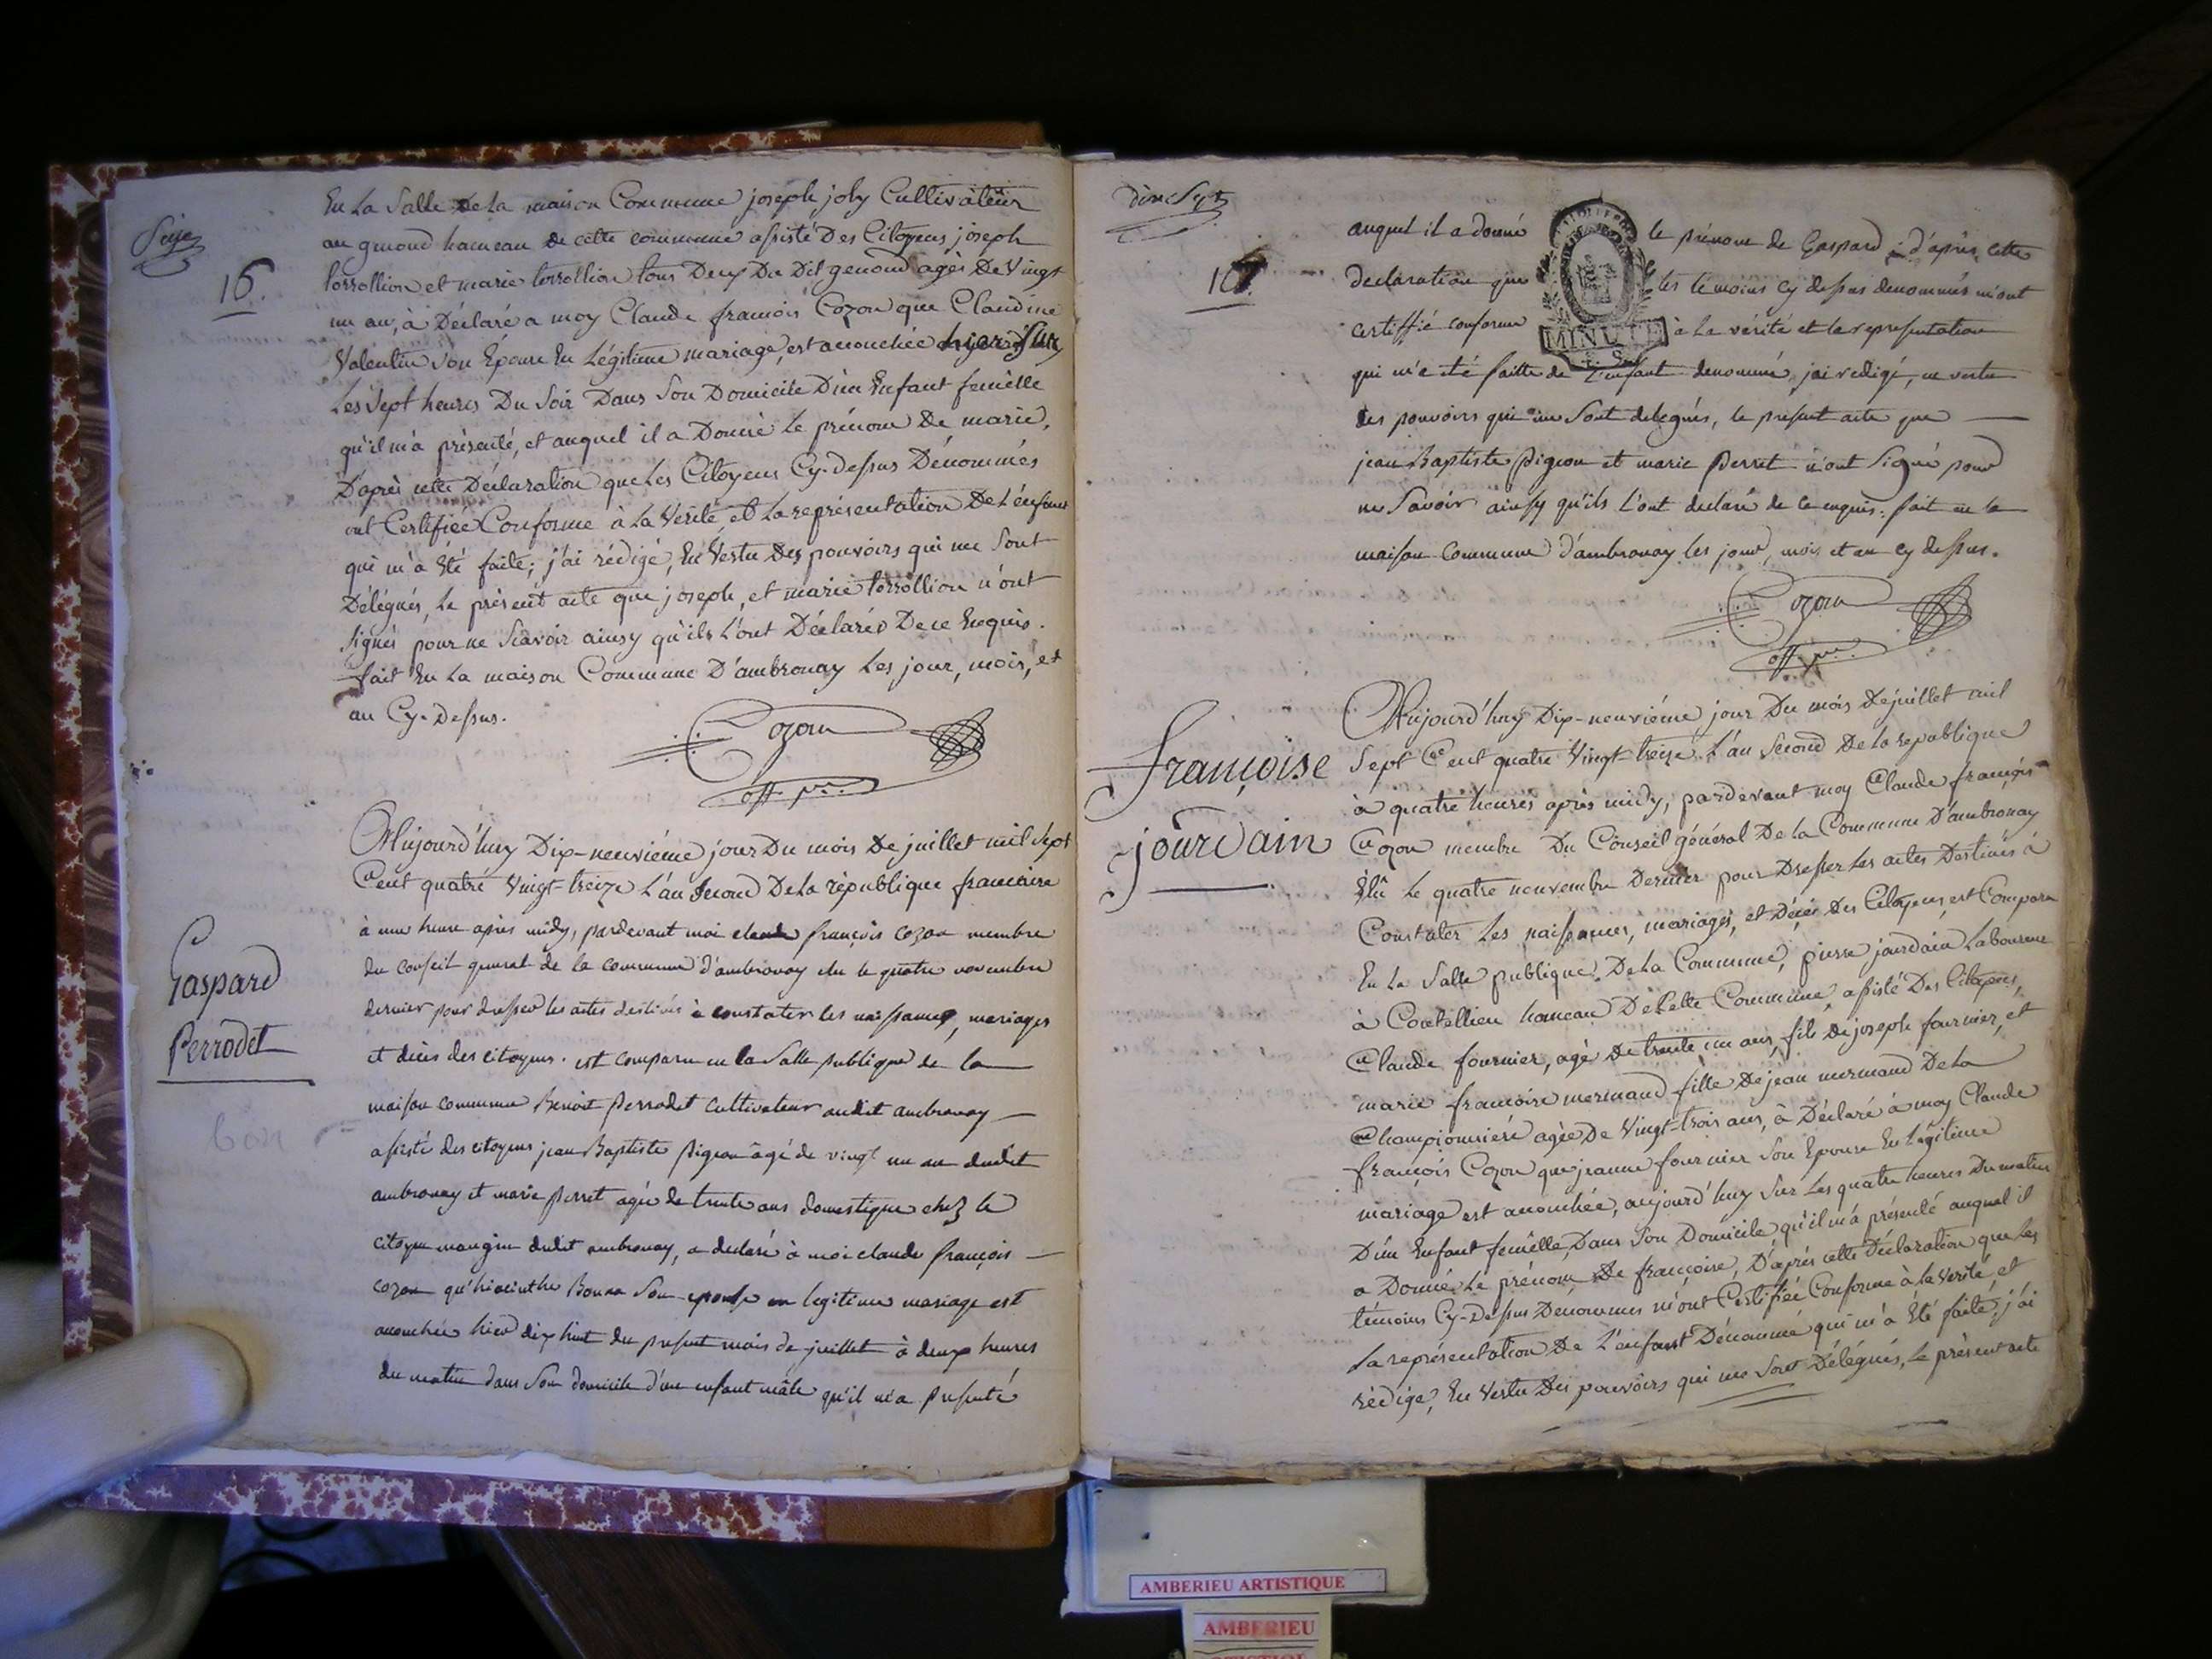 Seize
16.
En La Salle De La maison Commune joseph joly Cultivateur
au genoud hameau de cette commune assisté Des Citoyens joseph
torrollion et marie torrollion tous Deux Du Dit genoud agés De Vingt
un an, à Déclaré a moy Claude françois Cozon que Claudine
Valentin Son Épouse En Légitime mariage, est accouchée hier Sur
Les Sept heures Du Soir Dans Son Domicile D'un Enfant femelle
qu'il m'a présenté, et auquel il a Donné Le prénom De marie.
D'après cette Déclaration que Les Citoyens Cy-dessus Dénommés
ont Certifiée Conforme à La Verité, et La représentation De L'enfant
qui m'à Été faite; j'ai rédigé, En Vertu Des pouvoirs qui me Sont
Délégués, Le présent acte que joseph, et marie torrollion n'ont
Signés pour ne Scavoir ainsy qu'ils L'ont Déclarés De ce Enquis.
fait En La maison Commune D'ambronay Les jour, mois, et
an Cy-Dessus.
Cozon
off. p.er
Gaspard
Perrodet
bon
Aujourd'huy Dix-neuviéme jour Du mois De juillet mil Sept
Cent quatre Vingt-treize L'an Second De La république francaise
à une heure après midy, pardevant moi claude françois cozon membre
du conseil general de la commune d'ambronay elu le quatre novembre
dernier pour dresser les actes destinés à constater les naissances, mariages
et décès des citoyens. est comparu en la Salle publique de la
maison commune Benoit Perrodet cultivateur audit ambronay
assisté des citoyens jean Baptiste Pigeon âgé de vingt un an dudit
ambronay et marie Perret agée de trente ans domestique chez le
citoyen mangin dudit ambronay, a declaré à moi claude françois
cozon qu'hiacinthe Bonna Son epouse en legitime mariage est
accouchée hier dix huit du present mois de juillet à deux heures
du matin dans Son domicile d'un enfant mâle qu'il m'a presenté
dix Sept
17.
auquel il a donné le prénom de Gaspard; d'après cette
declaration que les temoins cy dessus denommés m'ont
certiffié conforme à la vérité et la representation
MINUTE
qui m'a eté faitte de L'enfant denommé, j'ai redigé, en vertu
des pouvoirs qui me Sont delegués, le present acte que
jean Baptiste Pigeon et marie Perret n'ont Signé pour
ne Savoir ainsy qu'ils L'ont declaré de ce enquis: fait en la
maison Commune d'ambronay les jour, mois et an cy dessus.
Cozon
off. p.er
françoise
jourdain
Aujourd'huy Dix-neuviéme jour Du mois De juillet mil
Sept Cent quatre Vingt-treize L'an Second De La republique
à quatre heures après midy, pardevant moy Claude françois
Cozon membre Du Conseil général De La Commune D'ambronay
Élû Le quatre nouvembre Dernier pour Dresser Les actes Destinés à
Constater Les naissances, mariages, et Décès Des Citoyens, est Comparu
En La Salle publique De La Commune, pierre jourdain Laboureur
à Coutellieu hameau De Cette Commune, assisté Des Citoyens,
Claude fournier, agé De trente un ans, fils De joseph fournier, et
marie francoise mermand fille De jean mermand De La
Championniere agée De Vingt-trois ans, à Déclaré à moy Claude
françois Cozon que jeanne fournier Son Epouse En Légitime
mariage est accouchée, aujourd'huy Sur Les quatre heures Du matin
D'un Enfant femelle, Dans Son Domicile, qu'il m'à présenté auquel il
a Donné Le prénom De francoise, D'après cette Déclaration que Les
témoins Cy-Dessus Denommés m'ont Certifiée Conforme à La Verité, et
La représentation De L'enfant Dénommé qui m'à Été faite, j'ai
rédigé, En Vertu Des pouvoirs qui me Sont Délégués, Le présent acte
AMBERIEU ARTISTIQUE
AMBERIEU